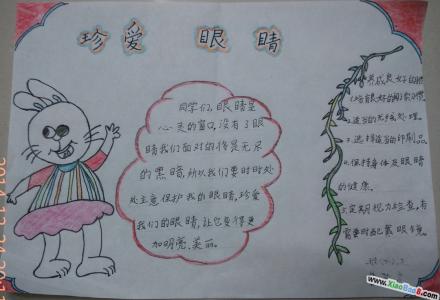 珍爱 眼睛
同学们,眼睛是
心灵的窗口,没有了眼
睛我们面对的将是无尽
的黑暗,所以我们要时时处
处注意保护我的眼睛,珍爱
我们的眼睛,让它变得更
加明亮、美丽。
养成良好的
2.适当的光线处理。
3.选择适当的印刷品
4.保持身体及眼睛
的健康。
5.定期视力检查,有
需要时配戴眼镜。
www.XiaoBao8.com